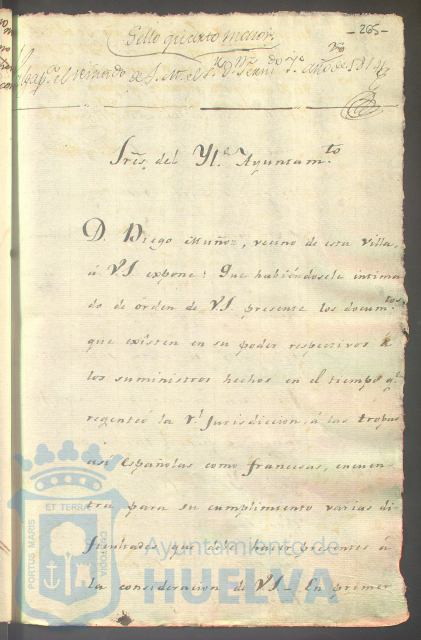 -265-
Sello quarto maior.
el reinado de S. M. el Sr. Dn. Fernando 7º año de 1814
Sres. del Yl.e Ayuntam.to
D. Diego Muñoz, vecino de esta Villa,
á V.I. expone: Que habiéndosele intima
do de órden de V.I. presente los docum.tos
que existen en su poder respectivos á
los suministros hechos en el tiempo q.e
regenteó la r.l Jurisdiccion, á las tropas
asi Españolas como francesas, encuen-
tra para su cumplimiento varias di
ficultades que debe hacer presentes á
la consideracion de V.I. En primer
PORTUS MARIS ET TERRAE CUSTODIA
Ayuntamiento de
HUELVA